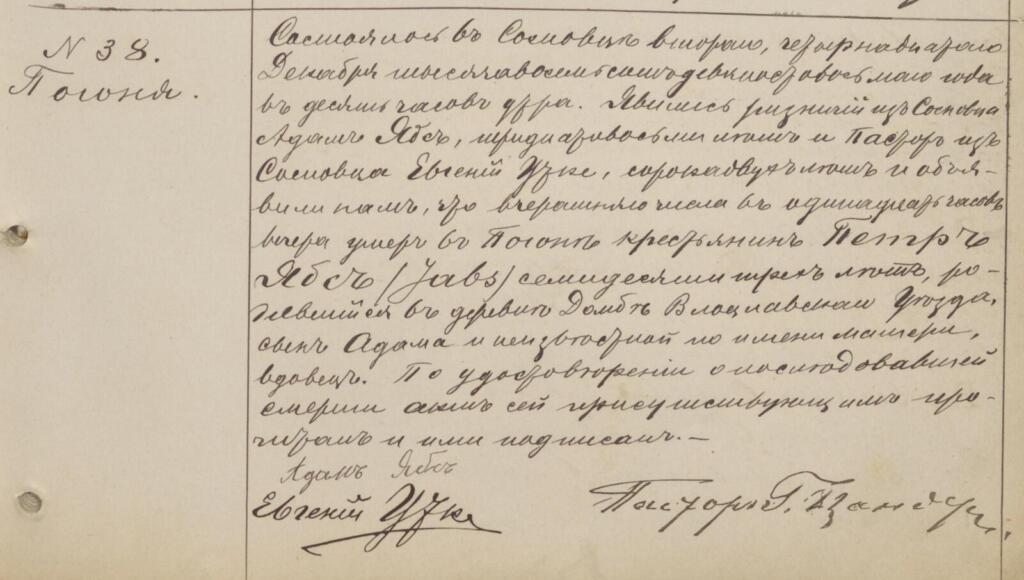 N 38.
Погоня.
Состоялось въ Сосновцѣ втораго, четырнадцатаго
Декабря тысяча восемьсотъ девяносто восьмаго года
въ десять часовъ утра. Явились ризничій изъ Сосновца
Адамъ Ябсъ, тридцати восьми лѣтъ и Пасторъ изъ
Сосновца Евгеній Утке, сорока двухъ лѣтъ и объя-
вили намъ, что вчерашняго числа въ одинадцать часовъ
вечера умеръ въ Погонѣ крестьянинъ Петръ
Ябсъ /Jabs/ семидесяти трехъ лѣтъ, ро-
дившійся въ деревнѣ Домбѣ Влоцлавскаго Уѣзда,
сынъ Адама и неизвѣстной по имени матери,
вдовецъ. По удостовѣреніи о послѣдовавшей
смерти актъ сей присутствующимъ про-
читанъ и ими подписанъ. —
Адамъ Ябсъ
Евгеній Утке
Пасторъ Г. Цандеръ.